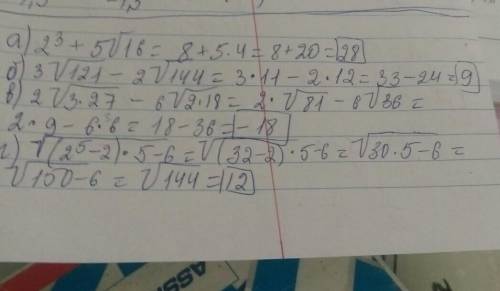 а) 2³ + 5√16 = 8 + 5·4 = 8 + 20 = 28
б) 3√121 - 2√144 = 3·11 - 2·12 = 33 - 24 = 9
в) 2√3·27 - 6√2·18 = 2·√81 - 6√36 =
2·9 - 6·6 = 18 - 36 = -18
г) √(2⁵-2)·5-6 = √(32-2)·5-6 = √30·5-6 =
√150-6 = √144 = 12
ASS